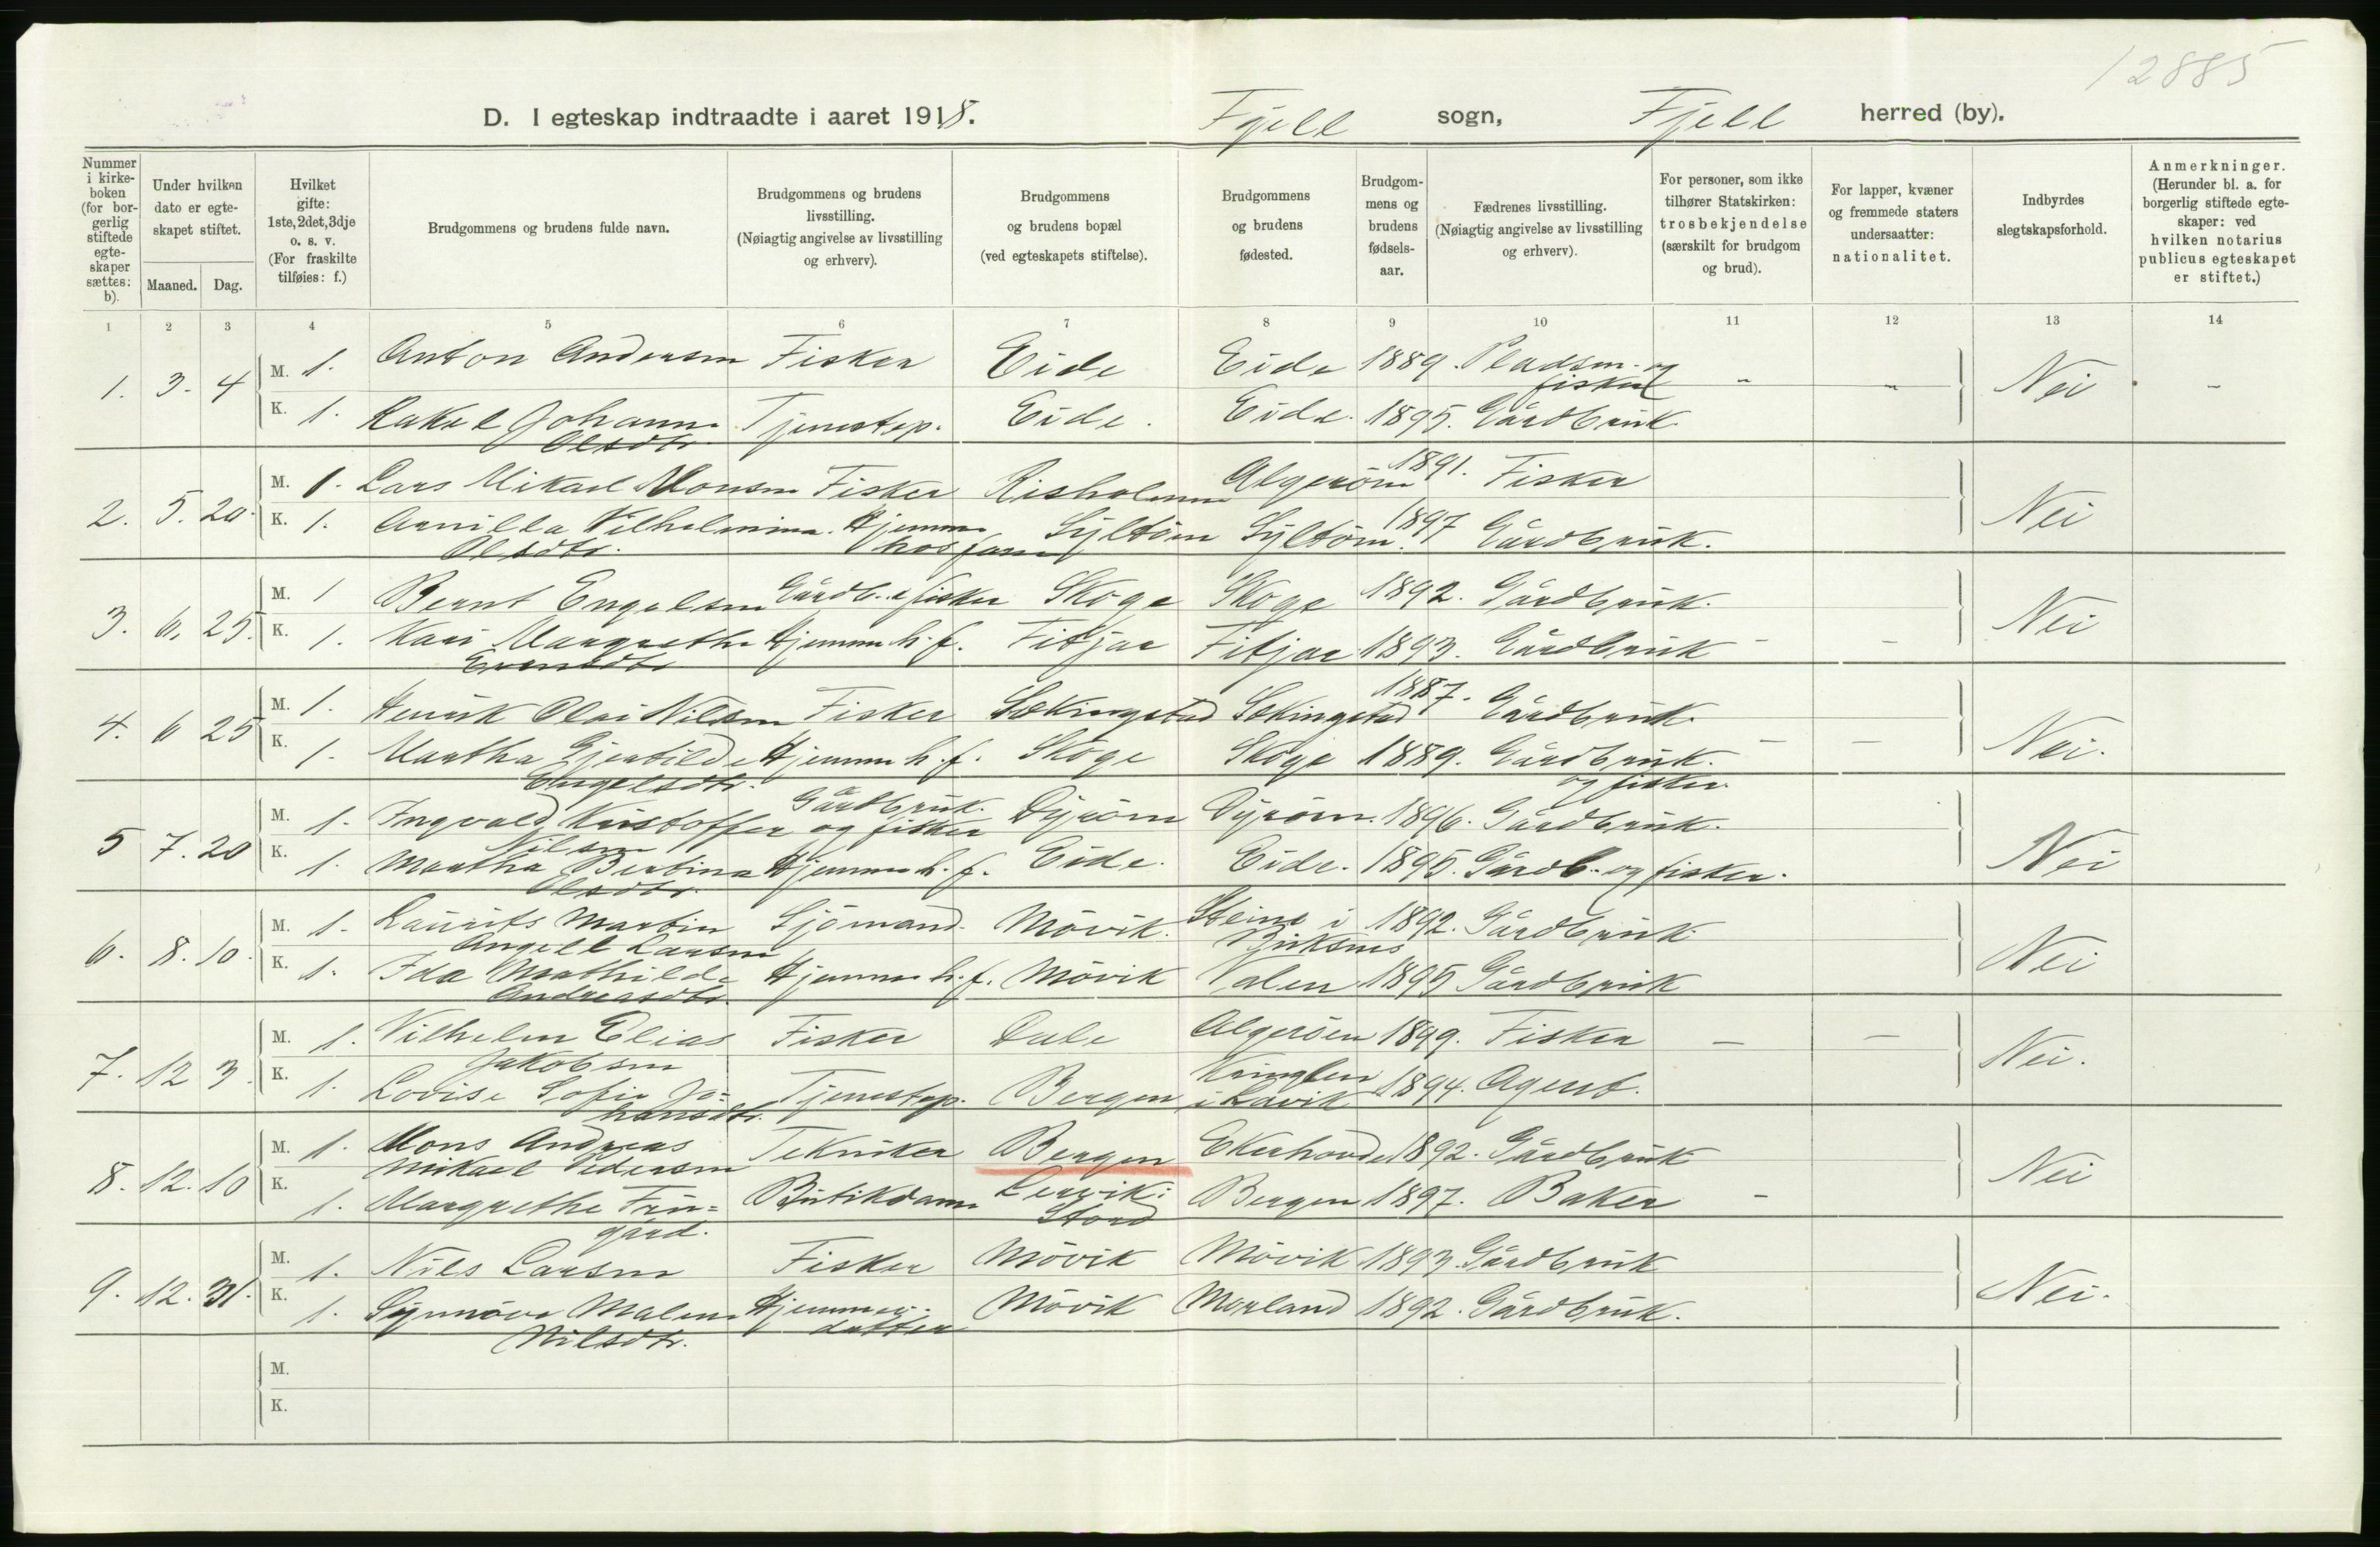 12885
D. I egteskap indtraadte i aaret 1918. Fjell sogn, Fjell herred (by).
Nummer i kirke-boken (for bor-gerlig stiftede egte-skaper sættes: b).
Under hvilken dato er egte-skapet stiftet.
Maaned. Dag.
Hvilket gifte: 1ste, 2det, 3dje o. s. v. (For fraskilte tilføies: f.)
Brudgommens og brudens fulde navn.
Brudgommens og brudens livsstilling. (Nøiagtig angivelse av livsstilling og erhverv).
Brudgommens og brudens bopæl (ved egteskapets stiftelse).
Brudgommens og brudens fødested.
Brudgom-mens og brudens fødsels-aar.
Fædrenes livsstilling. (Nøiagtig angivelse av livsstilling og erhverv).
For personer, som ikke tilhører Statskirken: trosbekjendelse (særskilt for brudgom og brud).
For lapper, kvæner og fremmede staters undersaatter: nationalitet.
Indbyrdes slegtskapsforhold.
Anmerkninger. (Herunder bl. a. for borgerlig stiftede egte-skaper: ved hvilken notarius publicus egteskapet er stiftet.)
1 2 3 4 5 6 7 8 9 10 11 12 13 14
1. 3. 4 M. 1. Anton Andersen Fisker Eide Eide 1889. Pladsm. og fisker - - Nei -
K. 1. Rakel Johanna Olsdtr. Tjenestep. Eide. Eide. 1895. Gårdbruk.
2. 5. 20. M. 1. Lars Mikael Monsen Fisker Risholmen Algerøen 1891. Fisker Nei
K. 1. Vilhelmina Olsdtr. Hjemme hos fam Syltøen Syltøen. 1897 Gårdbruk.
3. 6. 25. M. 1 Bernt Engelsen Gårdb. & fisker Skoge Skoge 1892. Gårdbruk. Nei
K. 1. Kari Margrethe Hjemme h. f. Fitjar Fitjar 1893. Gårdbruk - -
4. 6 25 M. 1. Henrik Olai Nilsen Fisker Sekingstad Sekingstad 1887. Gårdbruk. Nei.
K. 1. Martha Gjertilde Engelsdtr. Hjemme h. f. Skoge Skoge 1889. Gårdbruk. og fisker - -
5 7. 20 M. 1. Ingvald Kristoffer Nilsen Gårdbruk. og fisker Dyrøen Dyrøen. 1896. Gårdbruk. Nei
K. 1. Martha Bertina Olsdtr. Hjemme h. f. Eide. Eide. 1895. Gårdb. og fisker.
6. 8. 10. M. 1. Laurits Martin Angell Larsen Sjömand. Mövik. Steine i 1892. Gårdbruk Nei
K. 1. Ida Mathilde Andreasdtr. Hjemme h. f. Mövik Valen 1895 Gårdbruk
7. 12 3. M. 1. Vilhelm Elias Jakobsen Fisker Dale Algeröen 1899. Fisker - - Nei.
K. 1. Lovise Sofie Jo=hansdtr. Tjenestep. Bergen i Lavik 1894. Agent.
8. 12. 10 M. 1. Mons Andreas Mikael Pedersen Tekniker Bergen Ekerhovde 1892. Gårdbruk Nei
K. 1. Margrethe Fru=gård. Butikdame Lervik: Stord Bergen 1897. Baker -
9. 12. 31. M. 1. Nils Larsen Fisker Mövik Mövik 1893. Gårdbruk Nei.
K. 1. Synnöve Malene Nilsdtr. Hjemmev. datter Mövik Morland 1892. Gårdbruk.
M.
K.